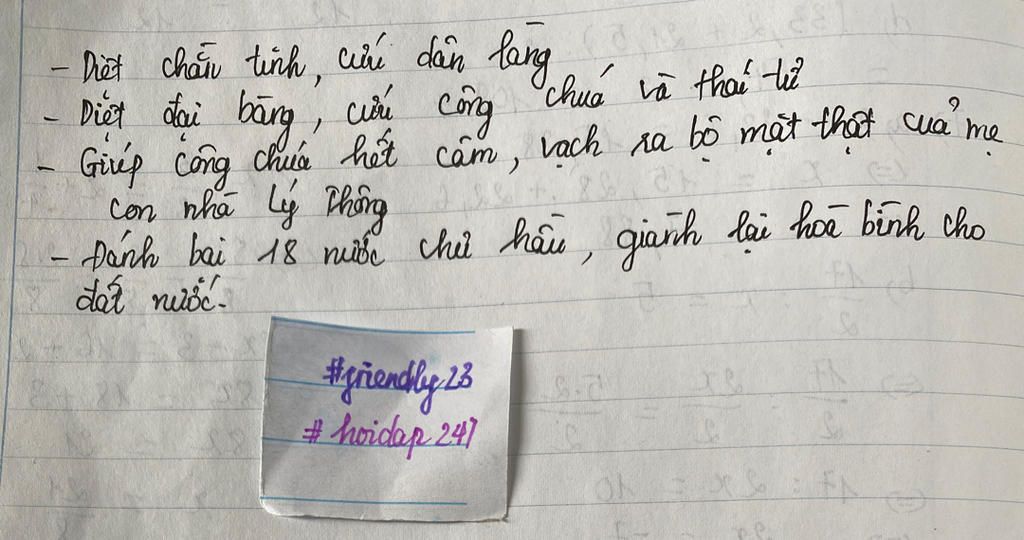 - Diệt chằn tinh, cứu dân làng
- Diệt đại bàng, cứu công chúa và thái tử
- Giúp công chúa hết câm, vạch ra bộ mặt thật cuả mẹ
con nhà Lý Thông
- Đánh bai 18 nước chư hầu, giành lại hoà bình cho
đất nước.
#friendly23
# hoidap 247